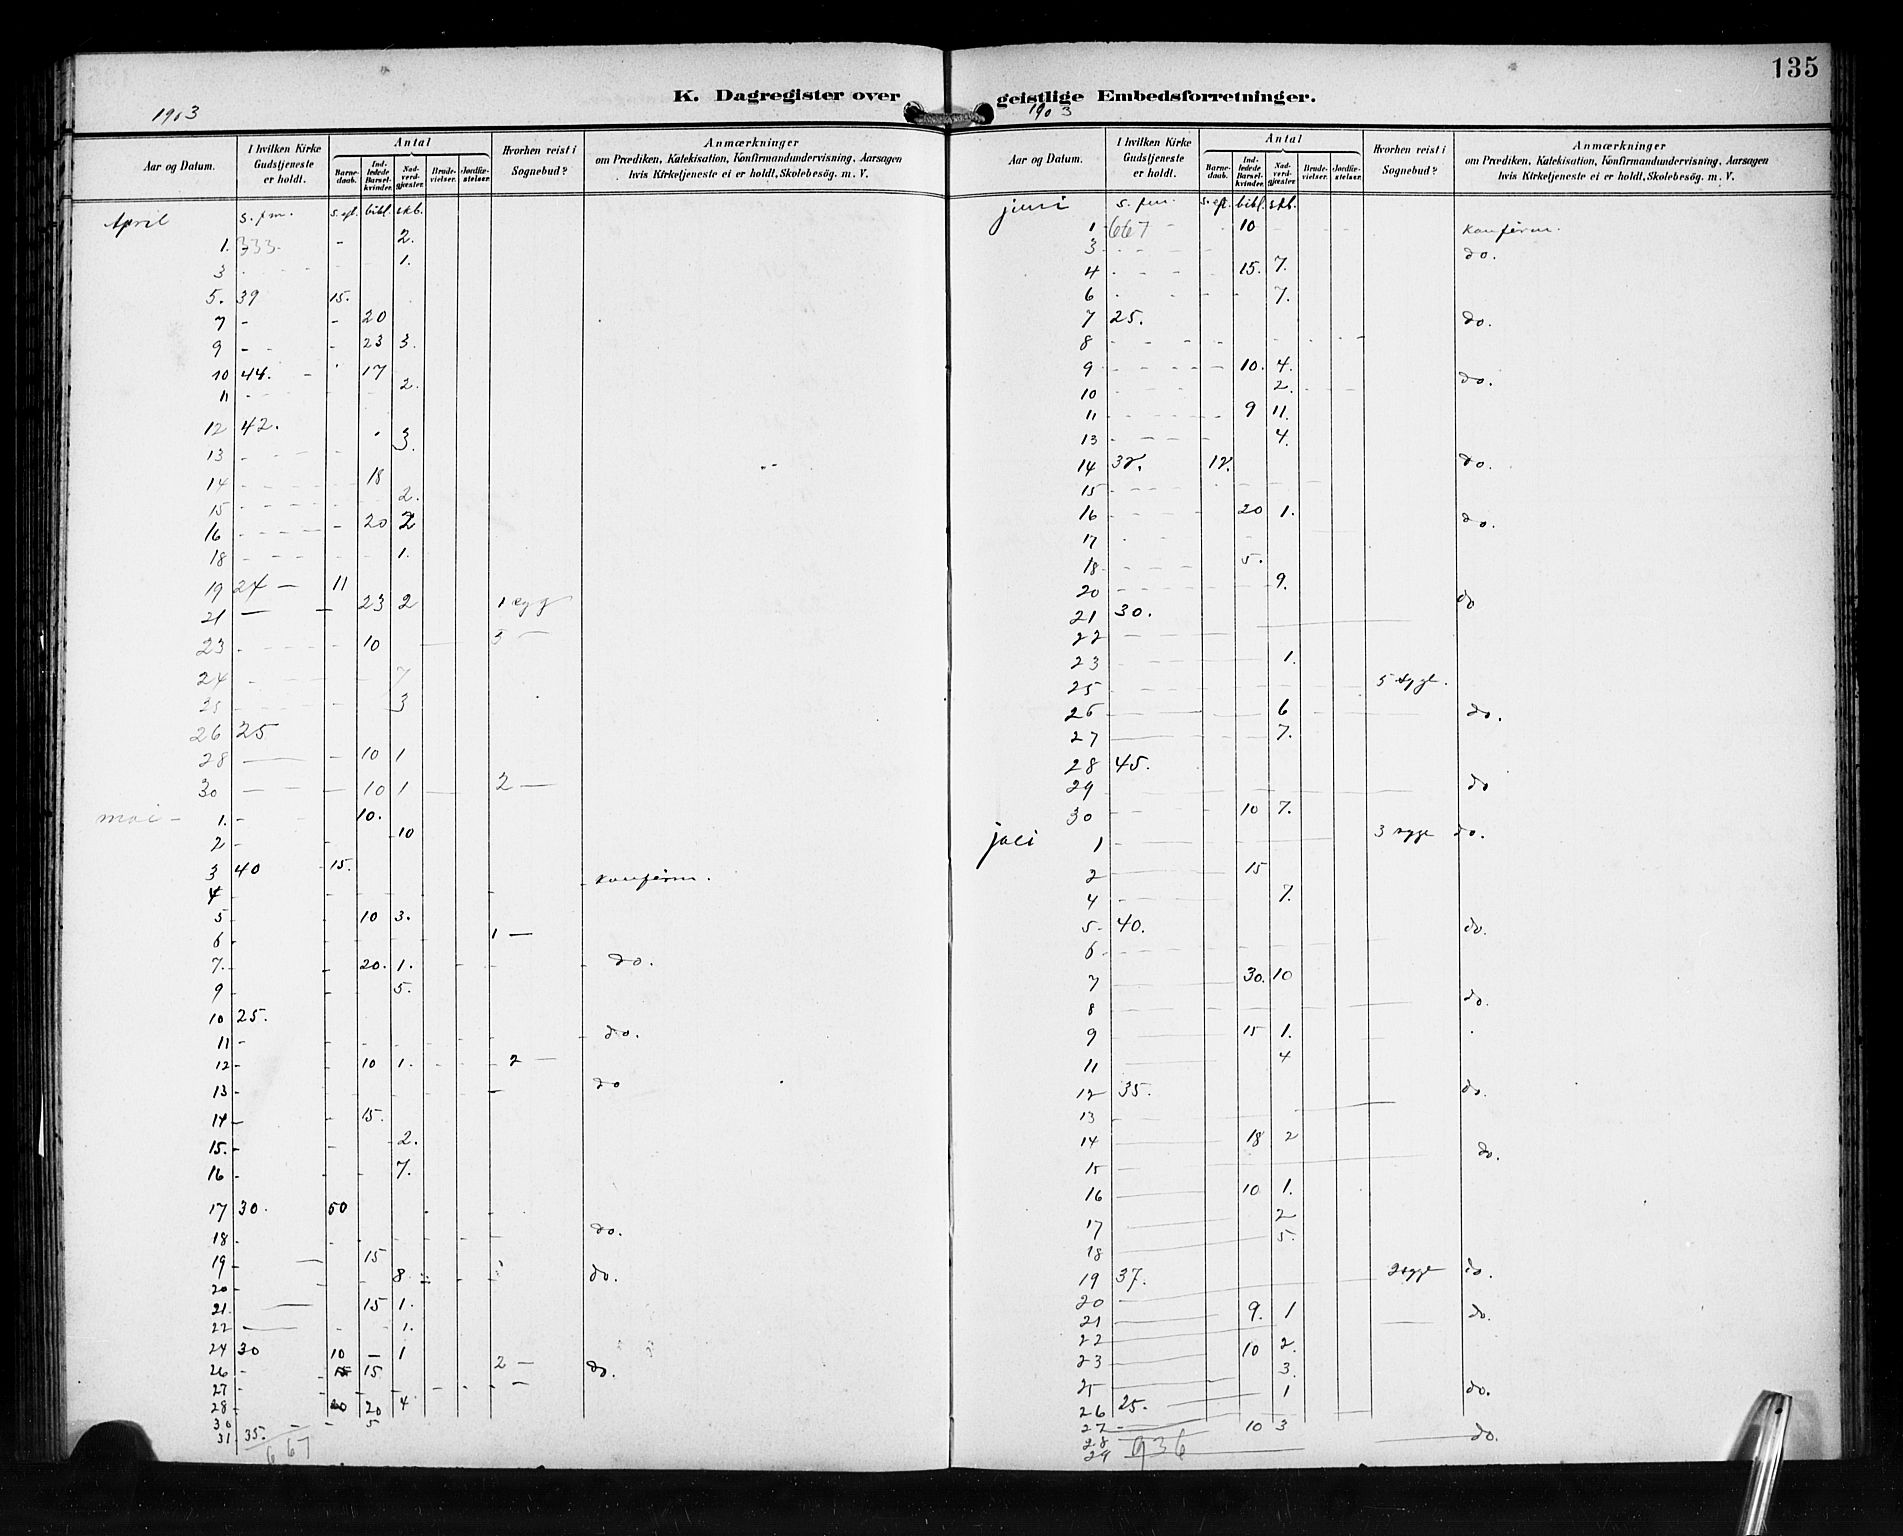 135
K. Dagregister over geistlige Embedsforretninger.
1903 1903
Aar og Datum. I hvilken Kirke Gudstjeneste er holdt. Antal Barnedaab. Indledede Barselkvinder. Nadverdgjester. Brudevielser. Jordfæstelser. Hvorhen reist i Sognebud? Anmærkninger om Prædiken, Katekisation, Konfirmandundervisning, Aarsagen hvis Kirketjeneste ei er holdt, Skolebesøg. m. V.
April s. fm. s. eft. bibl. skb.
1. 333. - 2.
3 - 1.
5. 39 15.
7 - - 20
9 - - 23 3.
10 44. - 17
11 - 2.
12 42.
13 - 3.
14 - 18
15 - 2.
16 - 20 2
18 - 1.
19 24 — 11
21 — 23 2 1 syg
23 - 10 3 —
24 - 7
25 - 3
26 25
28 — - 10 1
30 — 10 1 2 —
mai - 1. - 10.
2 - 10
3 40 15.
4 - konfirm.
5 - 10 3.
6 - 1 —
7. - 20. 1. do.
9 - 5.
10 25.
11 - do.
12 - 10 1. 2 —
13 - do
14 - 15.
15. - 2.
16 - 7.
17 30. 50
18 - do.
19 - 15
20 - 8 do.
21. — 15 1.
22 — 1.
24 30 10 — 1
26 - 15 15 2 — do.
27 -
28 - 20 20 4
30 - 5
31. 35.
667
Aar og Datum. I hvilken Kirke Gudstjeneste er holdt. Antal Barnedaab. Indledede Barselkvinder. Nadverdgjester. Brudevielser. Jordfæstelser. Hvorhen reist i Sognebud? Anmærkninger om Prædiken, Katekisation, Konfirmandundervisning, Aarsagen hvis Kirketjeneste ei er holdt, Skolebesøg. m. V.
juni s. fm. s. eft. bibl. skb.
1 667 - 10 konfirm.
3 - do.
4 - 15. 7.
6 - 7.
7 25. do.
8 -
9 - 10. 4.
10 - 2. do.
11 - 9 11.
13 - 4.
14 32. 12. do.
15 -
16 - 20 1. do.
17 -
18 - 5.
20 - 9.
21 30. do
22 —
23 - 1.
25 - 5 syge.
26 — 6 do.
27 — 7.
28 45.
29 - do
30 - 10 7.
juli 1 - 3 syge do.
2 - 15
4 - 7.
5 - 40. do.
6 -
7 — 30. 10
8 — do.
9 - 15 1.
11 — 4
12 35. do.
13 -
14 — 18 2
15 — do.
16 — 10 1.
17 — 2
18 — 5.
19 37. 2 syge do.
20 —
21 — 9. 1 do.
22 —
23 — 10 2.
25 — 3.
26 25. 1 do.
27 - 10 3
28 — do.
29 936